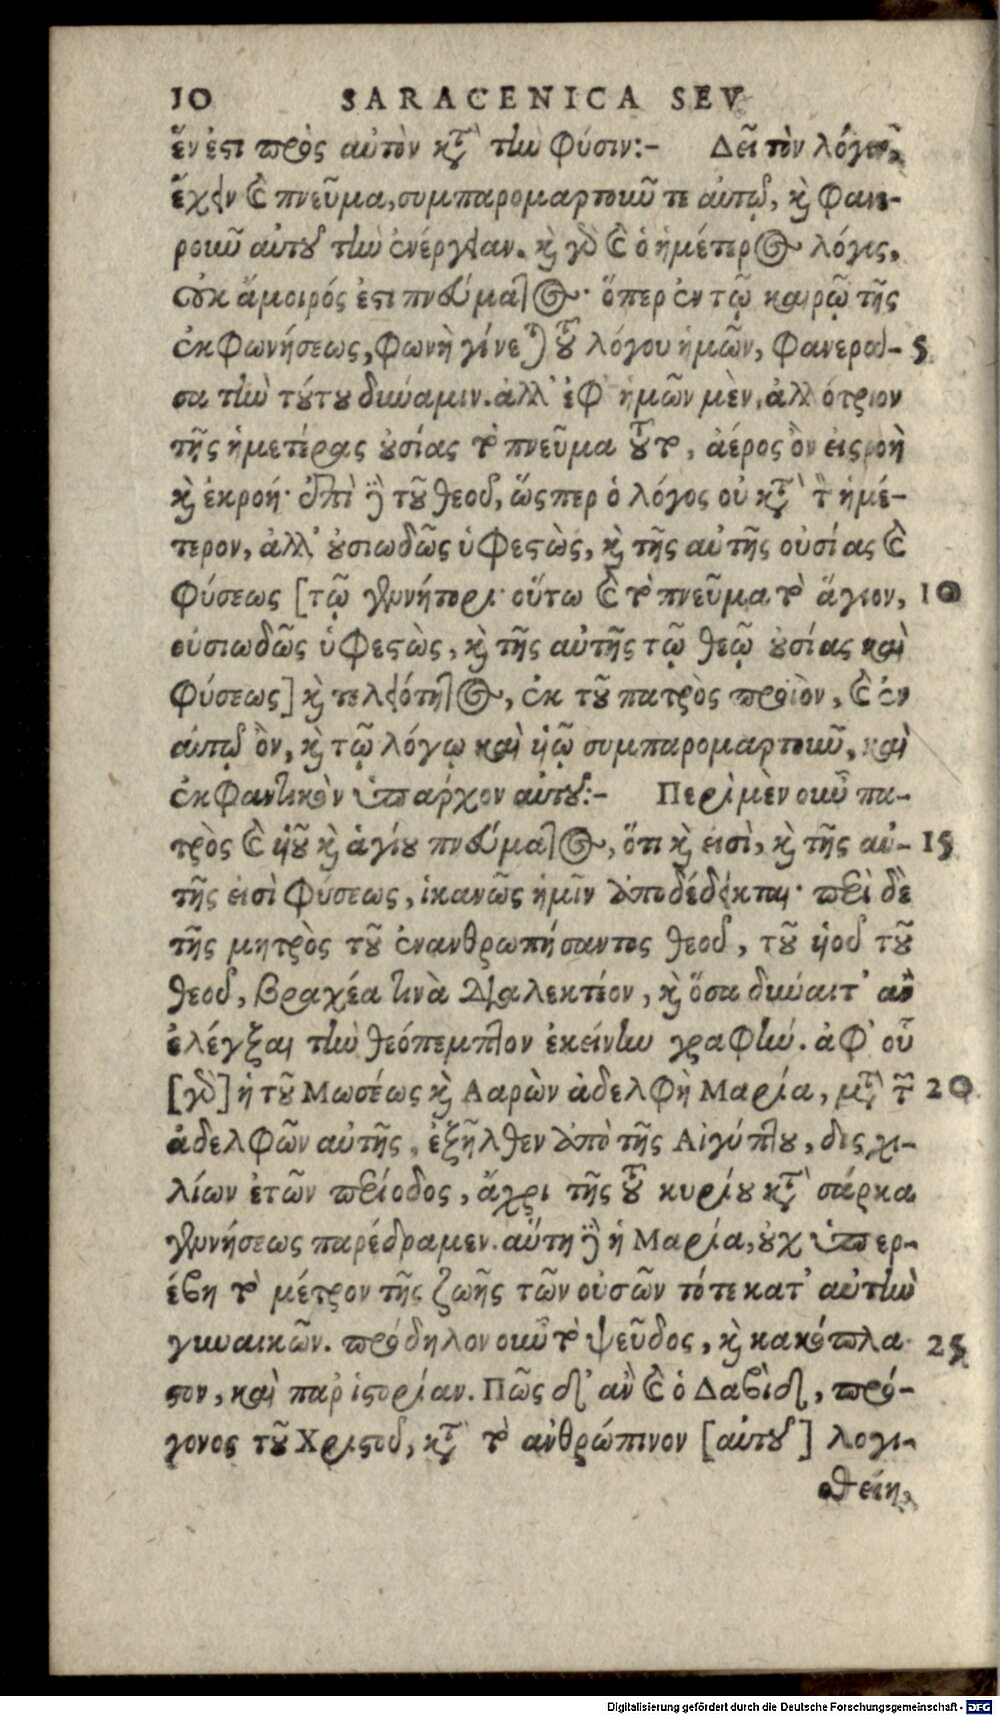 10 SARACENICA SEV
ἕν ἐστι πρὸς αὐτὸν κατὰ τὴν φύσιν:- Δεῖ τὸν λόγον
ἔχειν καὶ πνεῦμα, συμπαρομαρτοῦν τε αὐτῷ, καὶ φανε-
ροῦν αὐτοῦ τὴν ἐνέργειαν. καὶ γὰρ καὶ ὁ ἡμέτερος λόγος,
οὐκ ἄμοιρός ἐστι πνεύματος· ὅπερ ἐν τῷ καιρῷ τῆς
ἐκφωνήσεως, φωνὴ γίνεται τοῦ λόγου ἡμῶν, φανεροῦ- 5
σα τὴν τούτου δύναμιν. ἀλλ' ἐφ' ἡμῶν μὲν, ἀλλότριον
τῆς ἡμετέρας οὐσίας τὸ πνεῦμα τοῦτο, ἀέρος ὂν εἰσροὴ
καὶ ἐκροή· ἐπὶ δὲ τοῦ θεοῦ, ὥσπερ ὁ λόγος οὐ κατὰ τὸν ἡμέ-
τερον, ἀλλ' οὐσιωδῶς ὑφεστὼς, καὶ τῆς αὐτῆς οὐσίας καὶ
φύσεως [τῷ γεννήτορι· οὕτω καὶ τὸ πνεῦμα τὸ ἅγιον, 10
οὐσιωδῶς ὑφεστὼς, καὶ τῆς αὐτῆς τῷ θεῷ οὐσίας καὶ
φύσεως] καὶ τελειότητος, ἐκ τοῦ πατρὸς προϊὸν, καὶ ἐν
αὐτῷ ὂν, καὶ τῷ λόγῳ καὶ υἱῷ συμπαρομαρτοῦν, καὶ
ἐκφαντικὸν ὑπάρχον αὐτοῦ:- Περὶ μὲν οὖν πα-
τρὸς καὶ υἱοῦ καὶ ἁγίου πνεύματος, ὅτι καὶ εἰσὶ, καὶ τῆς αὐ- 15
τῆς εἰσὶ φύσεως, ἱκανῶς ἡμῖν ἀποδέδεικται· περὶ δὲ
τῆς μητρὸς τοῦ ἐνανθρωπήσαντος θεοῦ, τοῦ υἱοῦ τοῦ
θεοῦ, βραχέα τινὰ διαλεκτέον, καὶ ὅσα δύναιτ' ἂν
ἐλέγξαι τὴν θεόπεμπτον ἐκείνην γραφήν. ἀφ' οὗ
[γὰρ] ἡ τοῦ Μωσέως καὶ Ααρὼν ἀδελφὴ Μαρία, μετὰ τῶν 20
ἀδελφῶν αὐτῆς, ἐξῆλθεν ἀπὸ τῆς Αἰγύπτου, δισχι-
λίων ἐτῶν περίοδος, ἄχρι τῆς τοῦ κυρίου κατὰ σάρκα
γεννήσεως παρέδραμεν. αὕτη δὲ ἡ Μαρία, οὐχ ὑπερ-
έβη τὸ μέτρον τῆς ζωῆς τῶν οὐσῶν τότε κατ' αὐτὴν
γυναικῶν. πρόδηλον οὖν τὸ ψεῦδος, καὶ κακόπλα- 25
στον, καὶ παρ' ἱστορίαν. Πῶς δ' ἂν καὶ ὁ Δαβὶδ, πρό-
γονος τοῦ Χριστοῦ, κατὰ τὸ ἀνθρώπινον [αὐτοῦ] λογι-
σθείη,
Digitalisierung gefördert durch die Deutsche Forschungsgemeinschaft - DFG